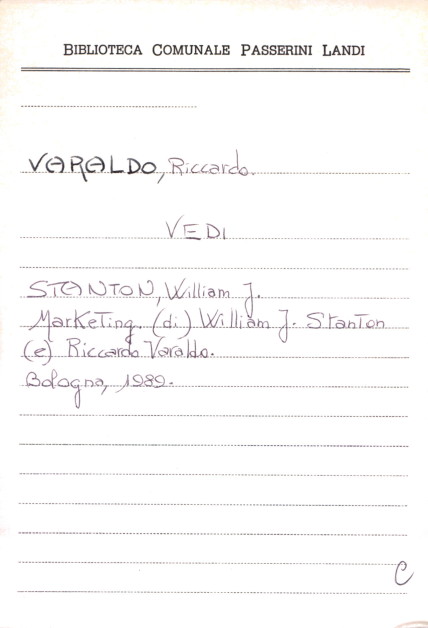 BIBLIOTECA COMUNALE PASSERINI LANDI
VARALDO, Riccardo.
VEDI
STANTON, William J.
Marketing. (di) William J. Stanton
(e) Riccardo Varaldo.
Bologna, 1989.
C